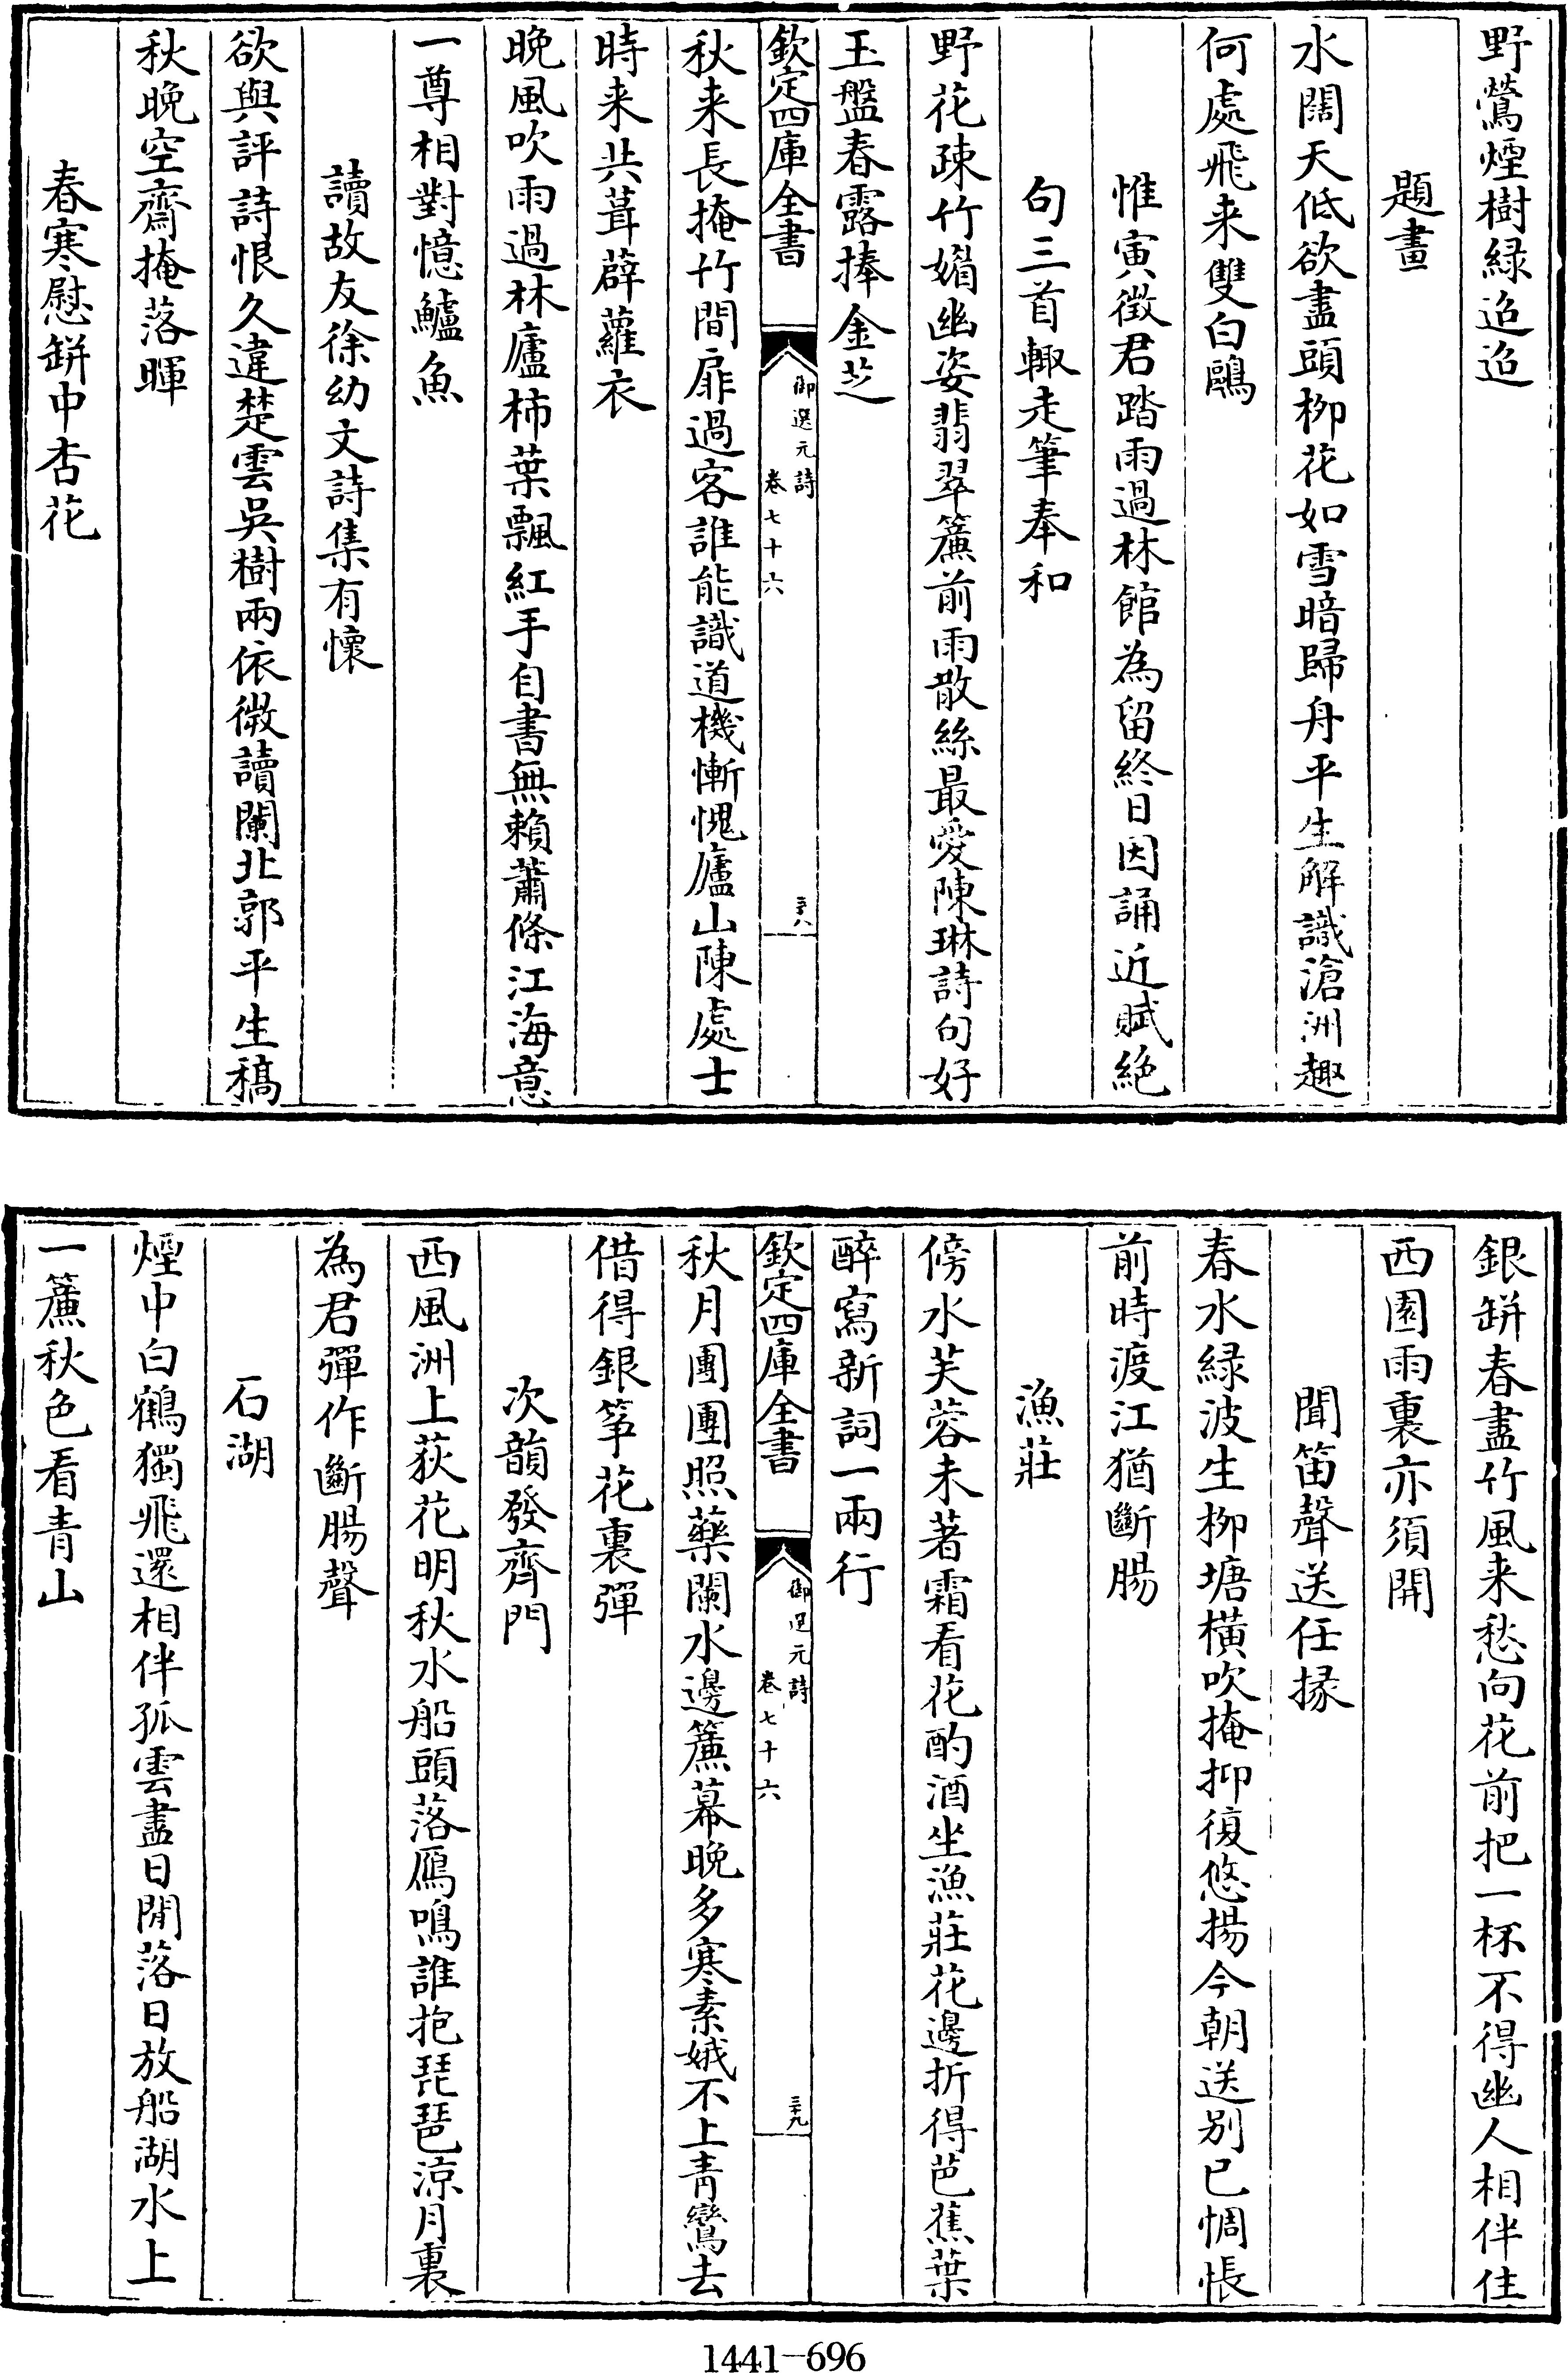 野鶯煙樹緑迢迢
題畫
水闊天低欲盡頭栁花如雪暗歸舟平生解識滄洲趣
何處飛来雙白鷗
惟寅徴君踏雨過林館為留終日因誦近賦絶
句三首輙走筆奉和
野花疎竹媚幽姿翡翠簾前雨散絲最愛陳琳詩句好
玉盤春露捧金芝
欽定四庫全書
御選元詩
卷七十六
三十八
秋来長掩竹間扉過客誰能識道機慚愧廬山陳處士
時来共葺薜蘿衣
晚風吹雨過林廬柿葉飄紅手自書無頼蕭條江海意
一尊相對憶鱸魚
讀故友徐幼文詩集有懐
欲與評詩恨久違楚雲吳樹兩依微讀闌北郭平生稿
秋晚空齋掩落暉
春寒慰缾中杏花
銀缾春盡竹風来愁向花前把一杯不得幽人相伴住
西園雨裏亦須開
聞笛聲送任掾
春水緑波生栁塘橫吹掩抑復悠揚今朝送别已惆悵
前時渡江猶斷腸
漁莊
傍水芙蓉未著霜看花酌酒坐漁莊花邊折得芭蕉葉
醉寫新詞一兩行
欽定四庫全書
御選元詩
卷七十六
三十九
秋月團團照藥闌水邊簾幕晚多寒素娥不上青鸞去
借得銀箏花裏彈
次韻發齊門
西風洲上荻花明秋水船頭落鴈鳴誰抱琵琶涼月裏
為君彈作斷腸聲
石湖
煙中白鶴獨飛還相伴孤雲盡日閒落日放船湖水上
一簾秋色看青山
1441-696